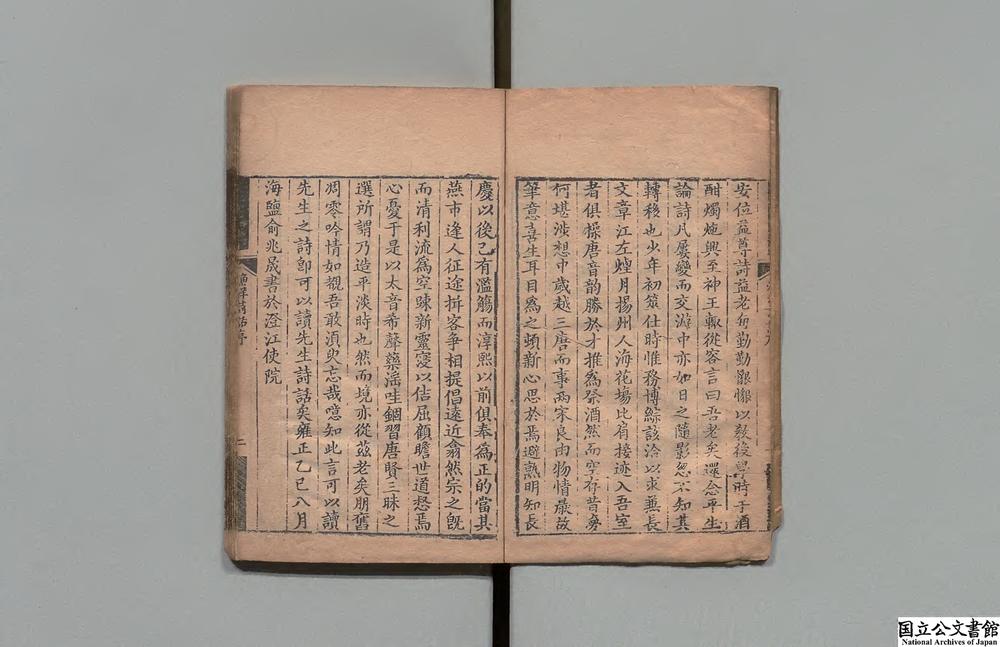 安位益尊詩益老每勤勤懇懇以教後學時于酒
酣燭灺興至神王輒從容言曰吾老矣還念平生
論詩凡屢變而交游中亦如日之隨影忽不知其
轉移也少年初筮仕時惟務博綜該洽以求兼長
文章江左煙月揚州人海花場比肩接迹入吾室
者俱操唐音韵勝於才推為祭酒然而空存昔夢
何堪涉想中歲越三唐而事兩宋良由物情厭故
筆意喜生耳目為之頓新心思於焉避熟明知長
慶以後已有濫觴而淳熙以前俱奉為正的當其
燕市逢人征途揖客爭相提倡遠近翕然宗之既
而清利流為空疎新靈寖以佶屈顧瞻世道惄焉
心憂于是以太音希聲藥淫哇錮習唐賢三昧之
選所謂乃造平淡時也然而境亦從茲老矣朋舊
凋零吟情如覩吾敢湏臾忘哉噫知此言可以讀
先生之詩即可以讀先生詩話矣雍正乙巳八月
海鹽俞兆晟書於澄江使院
漁洋詩話序
二
国立公文書館
National Archives of Japan